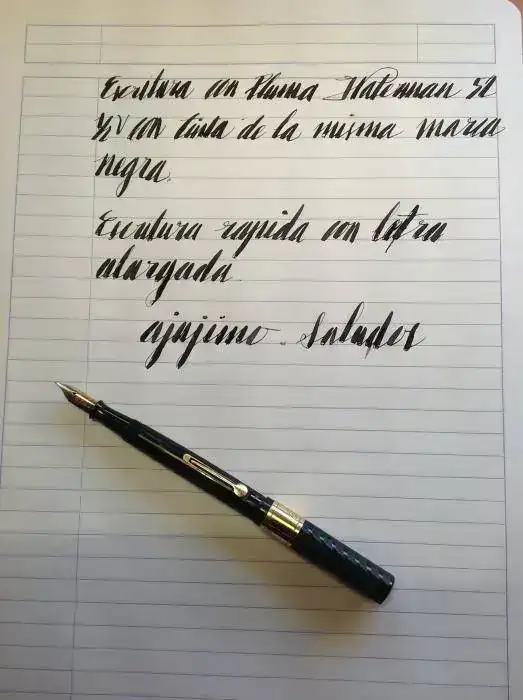 Escritura con Pluma Waterman 52
½ V con tinta de la misma marca
negra.
Escritura rapida con letra
alargada
ajajimo. Saludos